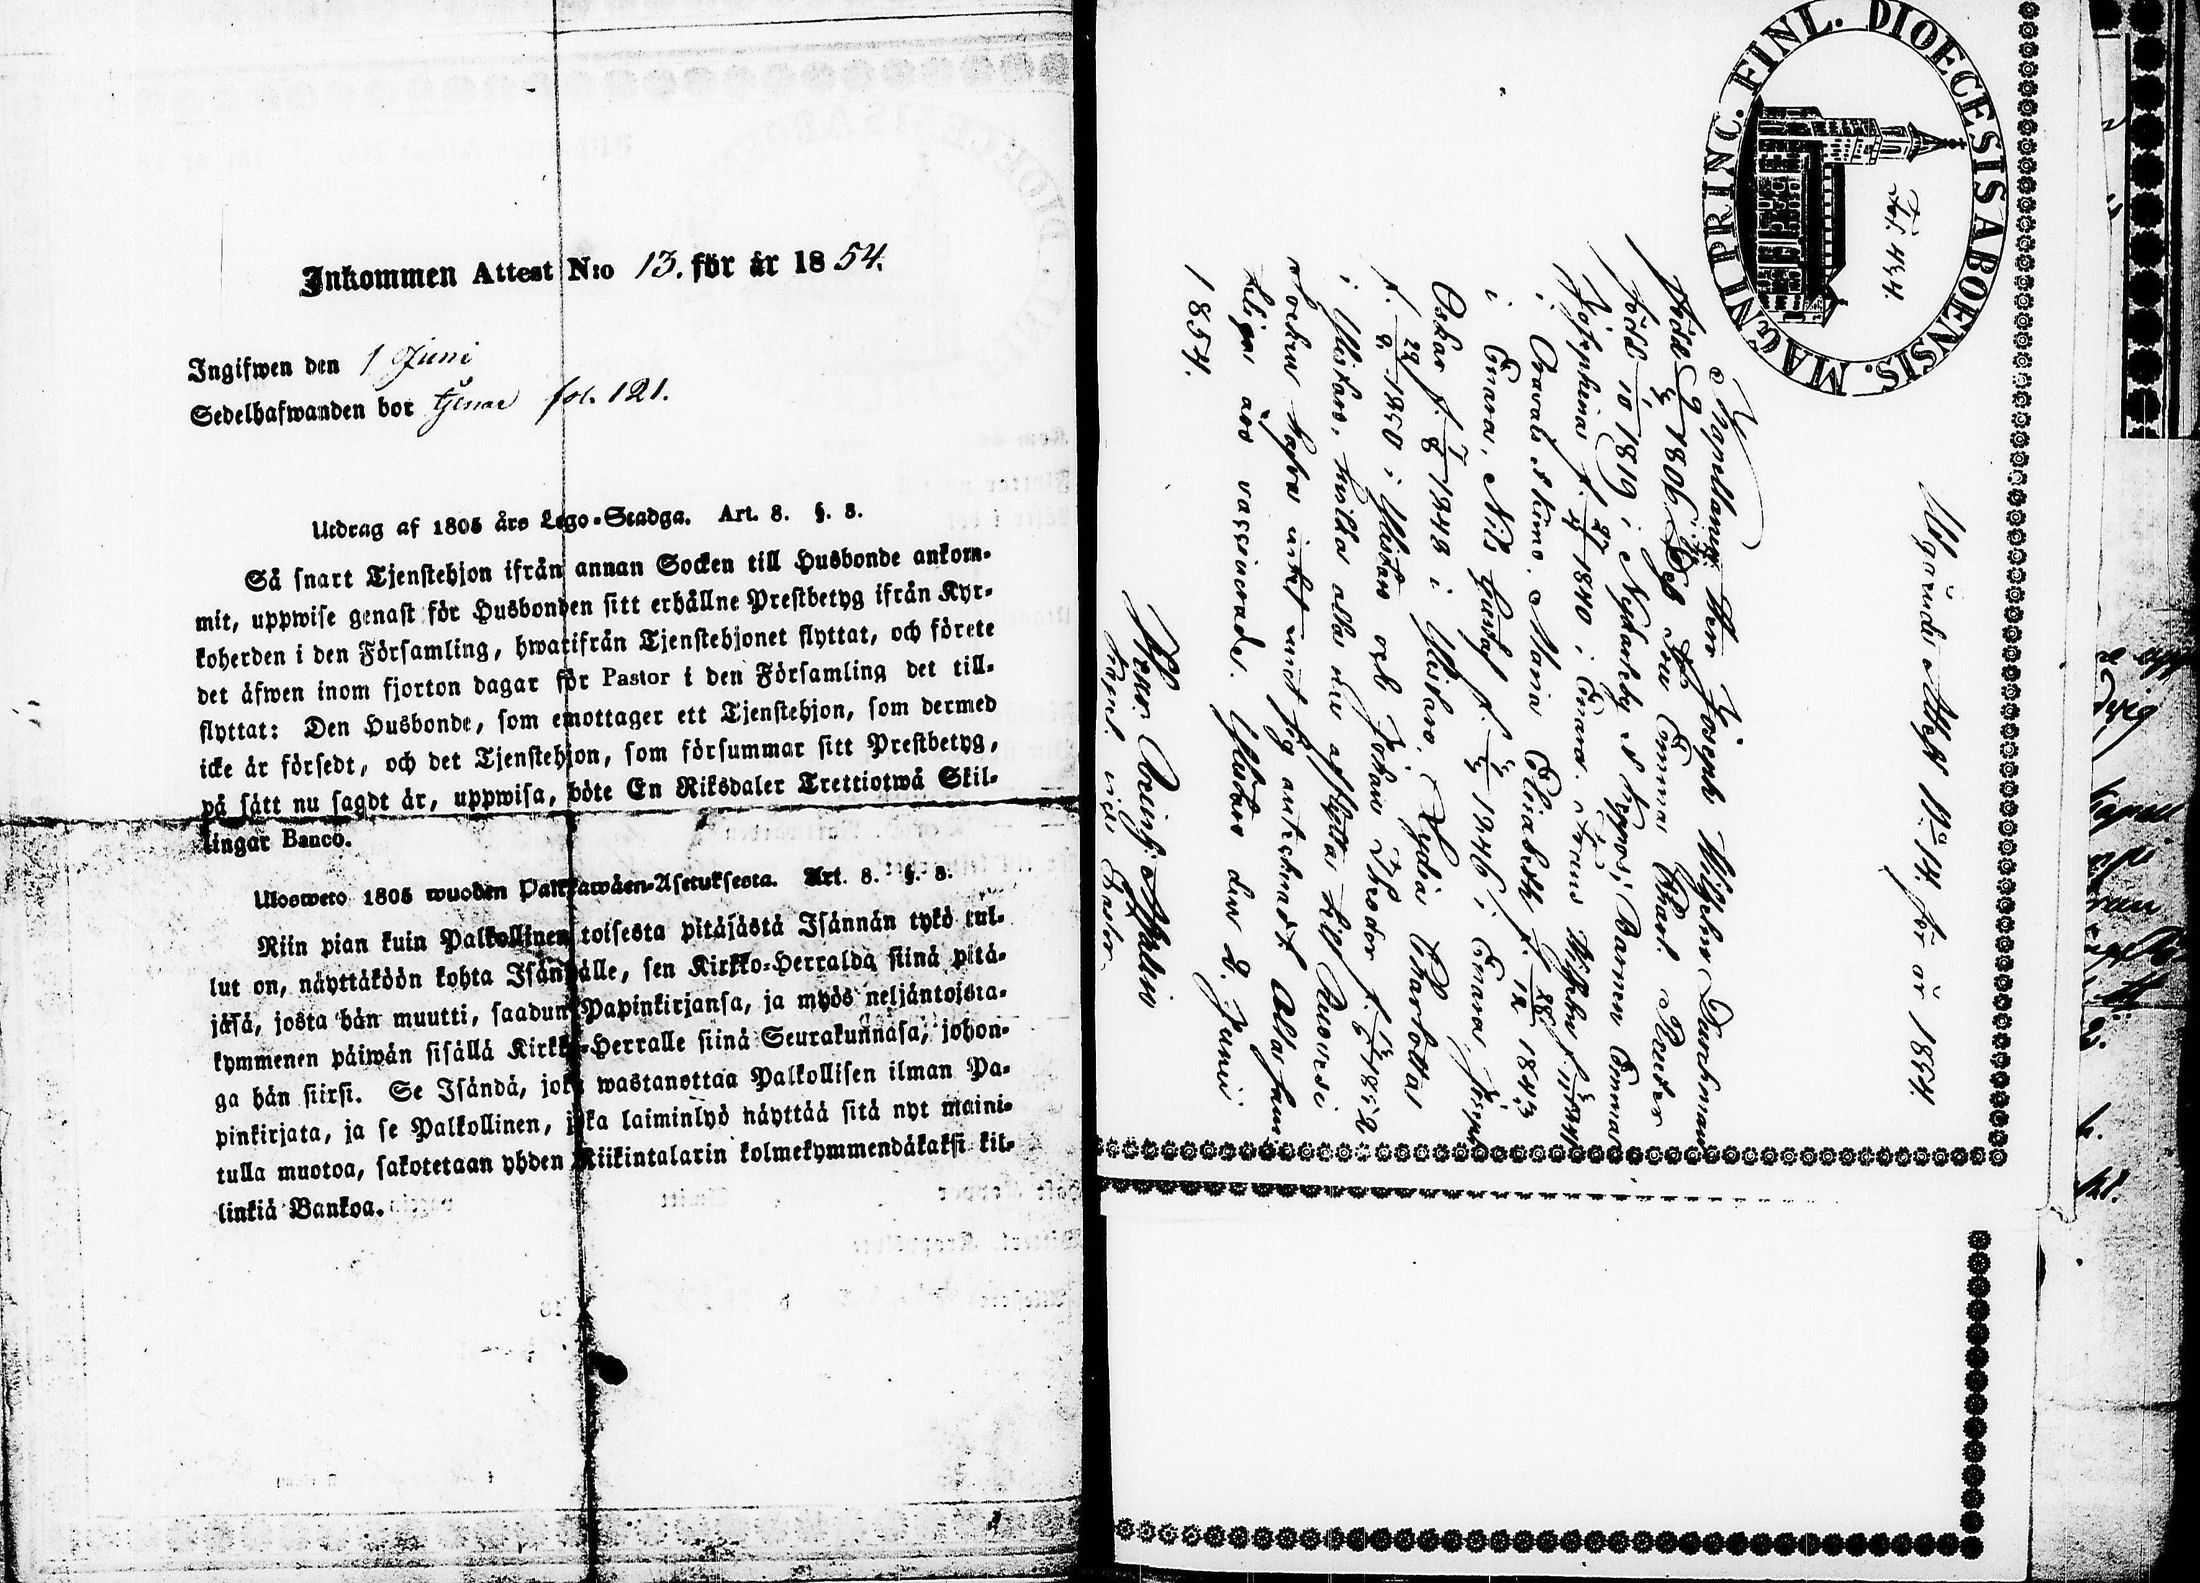 Inkommen Attest N:o 13. för år 1854.
Ingifwen den 1 Juni
Sedelhafwanden bor tjenar fol. 121.
Utdrag af 1805 års Lego-Stadga. Art. 8. §. 8.
Så snart Tjenstehjon ifrån annan Socken till Husbonde ankom-
mit, uppwise genast för Husbonden sitt erhållne Prestbetyg ifrån Kyr-
koherden i den Församling, hwarifrån Tjenstehjonet flyttat, och förete
det äfwen inom fjorton dagar för Pastor i den Församling det till-
flyttat: Den Husbonde, som emottager ett Tjenstehjon, som dermed
icke är försedt, och det Tjenstehjon, som försummar sitt Prestbetyg,
på sätt nu sagdt är, uppwisa, böte En Riksdaler Trettiotwå Skil-
lingar Banco.
Ulosweto 1805 wuoden Palkkawäen-Asetuksesta. Art. 8. §. 8.
Niin pian kuin Palkollinen toisesta pitäjästä Isännän tykö tul-
lut on, näyttäköön kohta Isännälle, sen Kirkko-Herralda siinä pitä-
jäsä, josta hän muutti, saadun Papinkirjansa, ja myös neljäntoista-
kymmenen päiwän sisällä Kirkko-Herralle siinä Seurakunnasa, johon-
ga hän siirsi. Se Isändä, joka wastanottaa Palkollisen ilman Pa-
pinkirjata, ja se Palkollinen, joka laiminlyö näyttää sitä nyt maini-
tulla muotoa, sakotetaan yhden Riikintalarin kolmekymmendäkaksi kil-
linkiä Bankoa.
MAGNI PRINC. FINL. DIOECESIS ABOENSIS.
Fol. 44.
Utgående Attest N:o 14. för år 1854.
Kapellanen Herr Joseph Wilhelm Durchman
född 1806. Dess Fru Emma Charl. Reuter
född 1/10 1819 i Nykarleby Stappos; Barnen Emma
Josephina f. 27/4 1840 i Enara. Frans Wilhelm f.
i Oravais Kimo. Maria Elisabeth f. 28/12 1843
i Enara, Nils Gustaf f. 1846 i Enara, Joseph
Oskar f. 7/8 1848 i Ylistaro. Lydia Charlotta
f. 29/9 1850 i Ylistaro och Johan Theodor f. 1852
i Ylistaro, hvilka alla nu afflytta till Ruovesi
socken hafva intet emot sig antecknadt. Alla sam-
teliga äro vaccinerade. Ylistaro den 2 Junii
1854.
Kapel. vice Pastor.